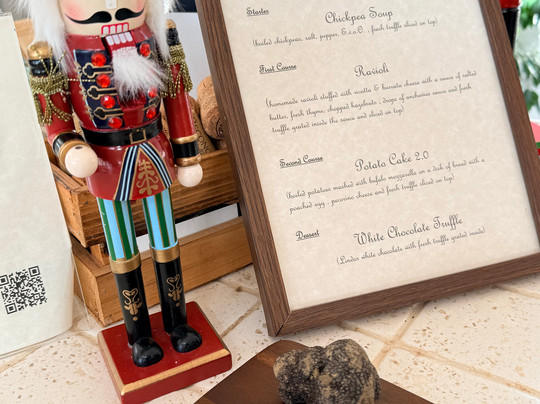 Starter
Chickpea Soup
(boiled chickpeas, salt, pepper, E.v.o.O. , fresh truffle sliced on top)
First Course
Ravioli
(homemade ravioli stuffed with ricotta & burrata cheese with a sauce of salted
butter, fresh thyme, chopped hazelnuts , drops of anchovies sauce and fresh
truffle grated inside the sauce and sliced on top)
Second Course
Potato Cake 2.0
(boiled potatoes mashed with bufalo mozzarella on a disk of bread with a
poached egg , pecorino cheese and fresh truffle sliced on top)
Dessert
White Chocolate Truffle
(Lindor white chocolate with fresh truffle grated inside)